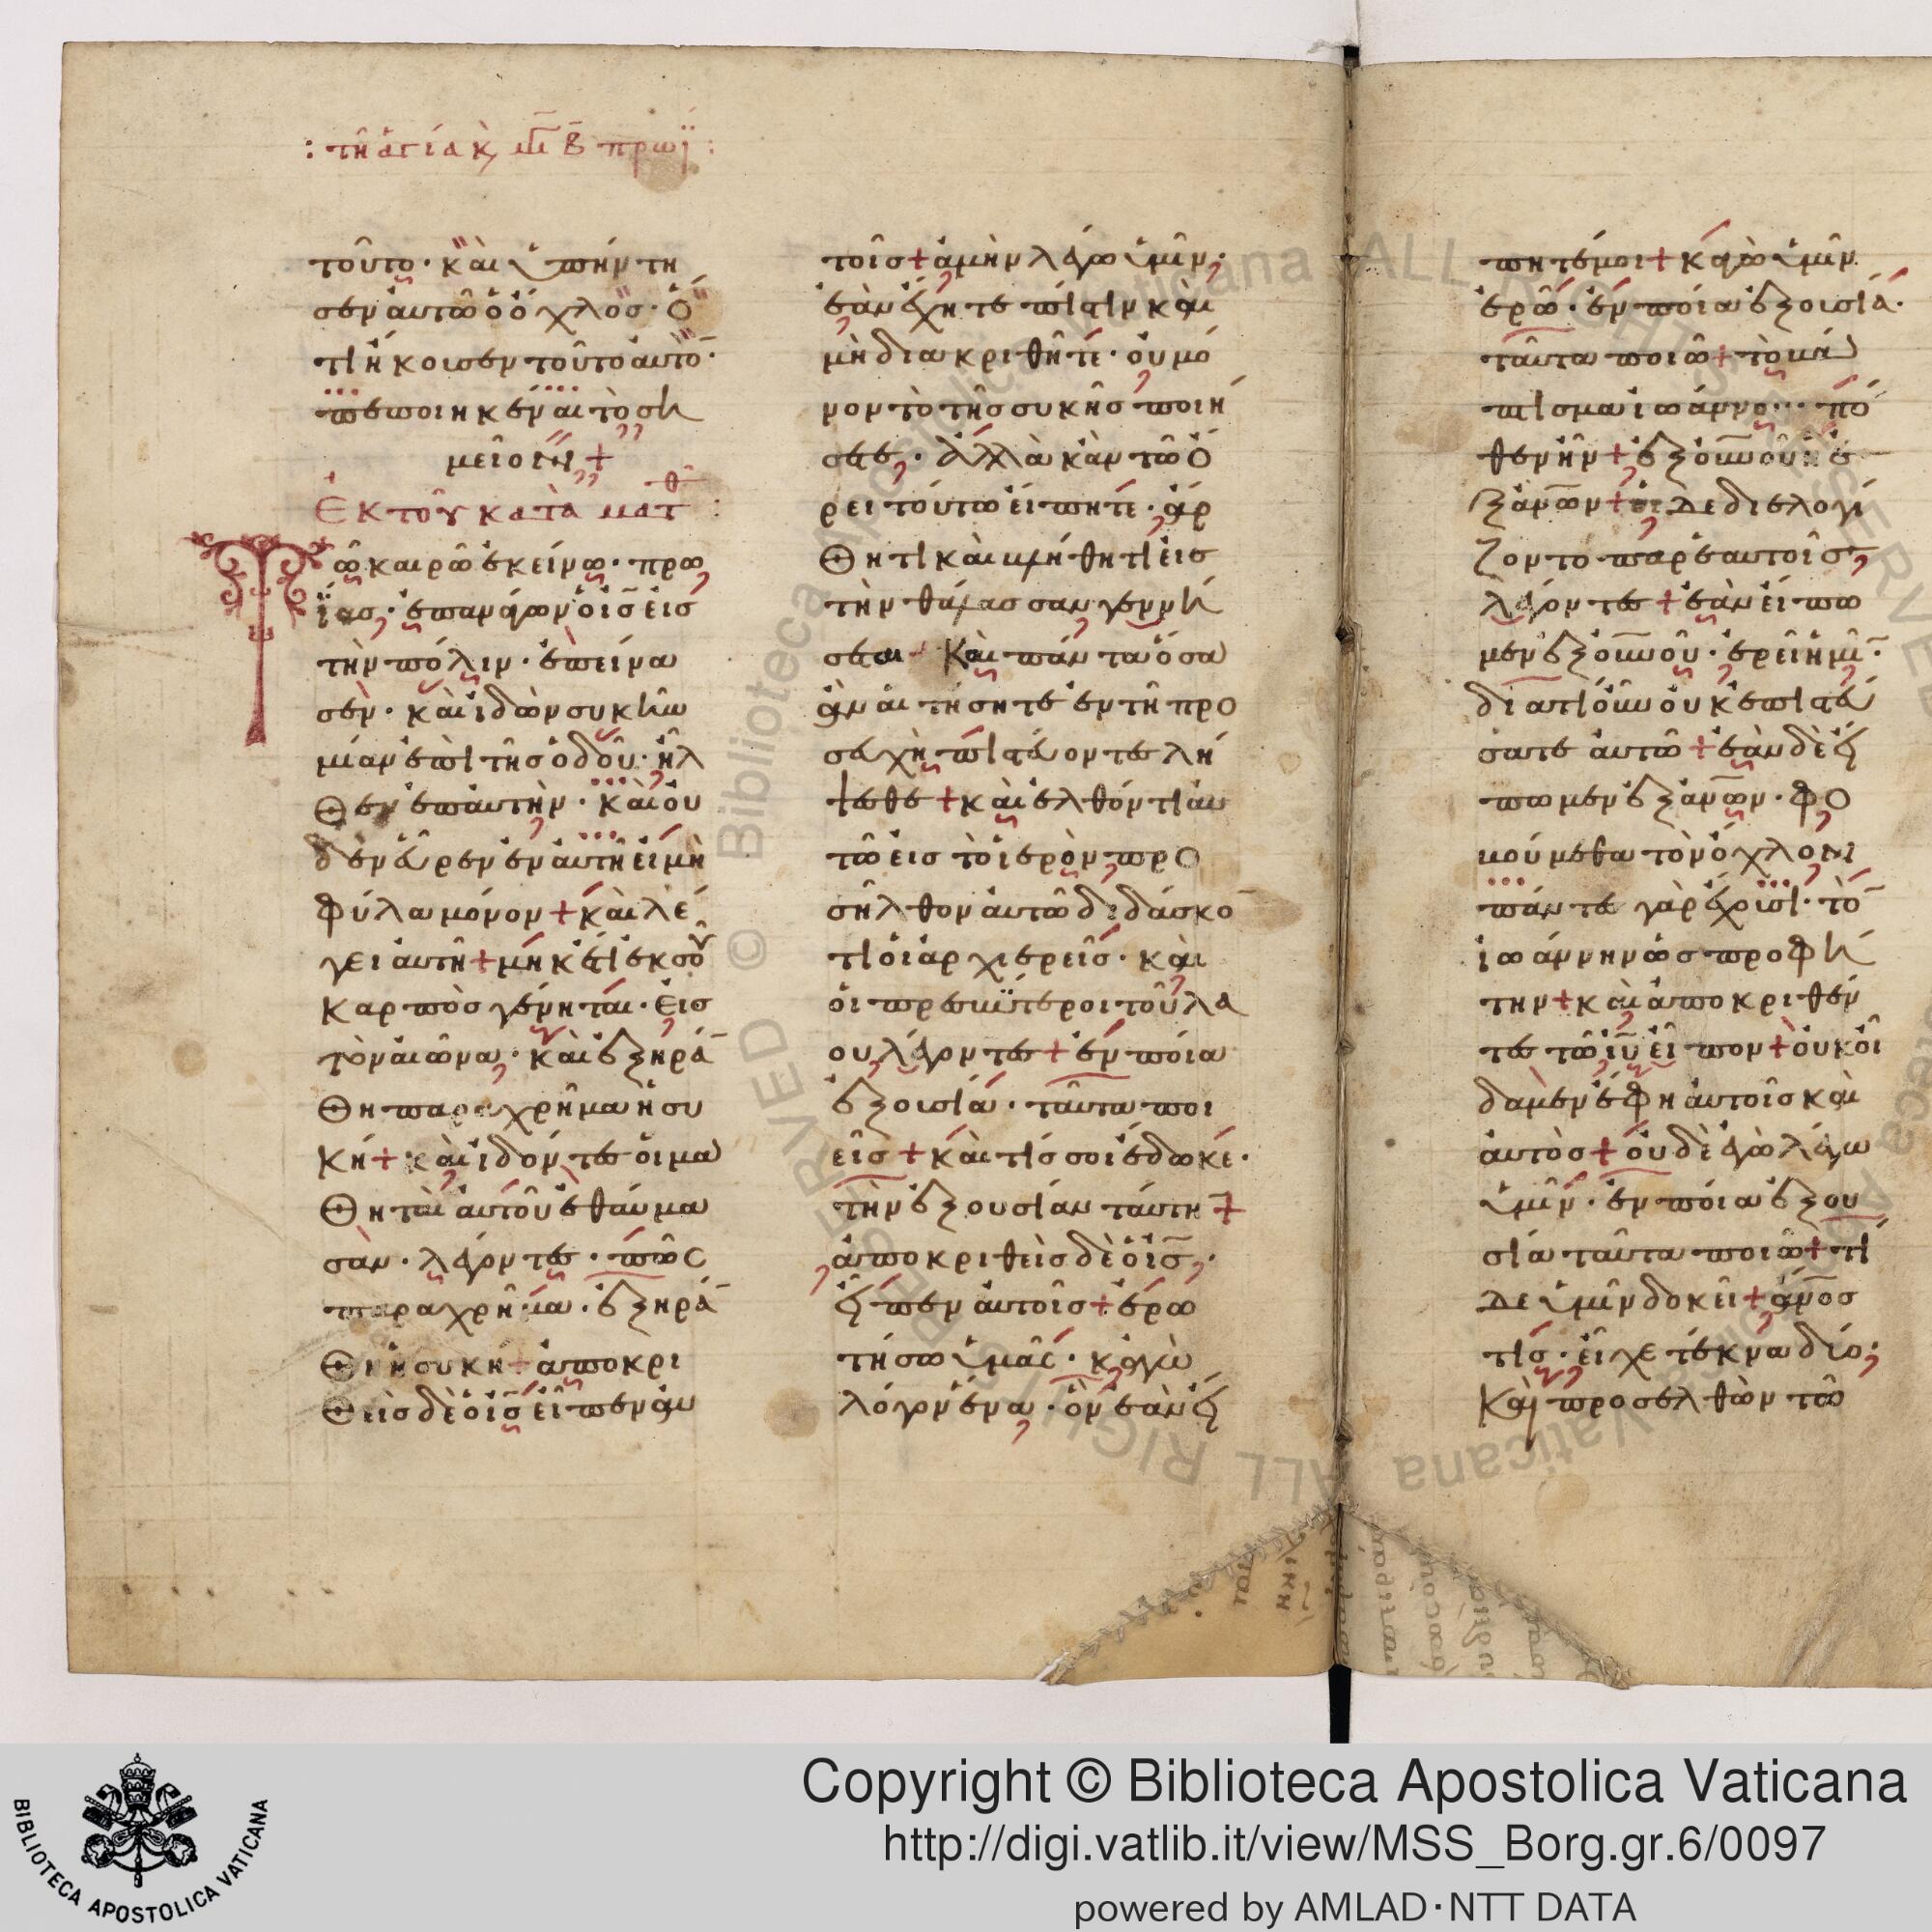 : τῆ ἁγία κ, μΓ Β πρωΐ :
τοῦτο · καὶ ὑπήντη
σεν αὐτῶ ὁ ὄχλος · ὅ
τι ἤκουσεν τοῦτο αὐτὸ̄ ·
πεποιηκέναι τὸ ση
μεῖον +
Ἐκ τοῦ κατὰ ματθ :
Τῶ καιρῶ ἐκείνω · πρω
ΐας · ἐπανάγων ὁ ις̄ εἰς
τὴν πόλιν · ἐπείνα
σεν · καὶ ἰδὼν συκῆν
μίαν ἐπὶ τῆς ὁδοῦ · ἦλ
θεν ἐπ' αὐτὴν · καὶ οὐ
δὲν εὗρεν ἐν αὐτῆ εἰ μὴ
φύλα μόνον + καὶ λέ
γει αὐτῆ + μηκέτι ἐκ σοῦ
καρπὸς γένηται · εἰς
τὸν αἰῶνα · καὶ ἐξηρά̄
θη παραχρῆμα ἡ συ
κῆ + καὶ ἰδόντες οἱ μα
θηταὶ αὐτοῦ ἐθαύμα
σαν · λέγοντες · πῶς
παραχρῆμα · ἐξηρά̄
θη ἡ συκῆ + ἀποκρι
θεὶς δὲ ὁ ις̄ εἶπεν αὐ
τοῖς + ἀμὴν λέγω ὑμῖν ·
ἐὰν ἔχητε πίστιν καὶ
μὴ διακριθῆτε · οὐ μό
νον τὸ τῆς συκῆς ποιή
σετε · ἀλλὰ κἂν τῶ ὄ
ρει τούτω εἴπητε · ἄρ
θητι καὶ βλήθητι εἰς
τὴν θάλασσαν γενή
σεται + Καὶ πάντα ὅσα
ἂν αἰτήσητε ἐν τῆ προ
σευχῆ πιστεύοντες λή
ψεσθε + καὶ ἐλθόντι αὐ
τῶ εἰς τὸ ἱερὸν προ
σῆλθον αὐτῶ διδάσκο̄
τι οἱ ἀρχιερεῖς · καὶ
οἱ πρεσβύτεροι τοῦ λα
οῦ λέγοντες + ἐν ποία
ἐξουσία · ταῦτα ποι
εῖς + καὶ τίς σοι ἔδωκε ·
τὴν ἐξουσίαν ταύτη +
ἀποκριθεὶς δὲ ὁ ις̄ ·
εἶπεν αὐτοῖς + ἐρω
τήσω ὑμᾶς · κἀγὼ
λόγον ἕνα · ὃν ἐὰν εἴ
πητέ μοι + κἀγὼ ὑμῖν
ἐρῶ · ἐν ποία ἐξουσία ·
ταῦτα ποιῶ + τὸ βά
πτισμα ἰωάννου πό
θεν ἦν + ἐξ ουνου ἢ ἐ
ξ ανων + οἱ δὲ διελογί
ζοντο παρ' ἑαυτοῖς
λέγοντες + ἐὰν εἴπω
μεν ἐξ ουνου · ἐρεῖ ἡμῖ̄ ·
διατί οὖν οὐκ ἐπιστεύ
σατε αὐτῶ + ἐὰν δὲ εἴ
πωμεν ἐξ ανων · φο
βούμεθα τὸν ὄχλον
πάντες γὰρ ἔχουσι · τὸ̄
ἰωάννην ὡς προφή
την + καὶ ἀποκριθέν
τες τῶ ιυ εἶπον + οὐκ οἴ
δαμεν ἔφη αὐτοῖς καὶ
αὐτὸς + οὐδὲ ἐγὼ λέγω
ὑμῖν · ἐν ποία ἐξου
σία ταῦτα ποιῶ + τί
δὲ ὑμῖν δοκεῖ + ανος
τίς · εἶχε τέκνα δύο ·
καὶ προσελθὼν τῶ
Copyright © Biblioteca Apostolica Vaticana
http://digi.vatlib.it/view/MSS_Borg.gr.6/0097
powered by AMLAD·NTT DATA
BIBLIOTECA APOSTOLICA VATICANA